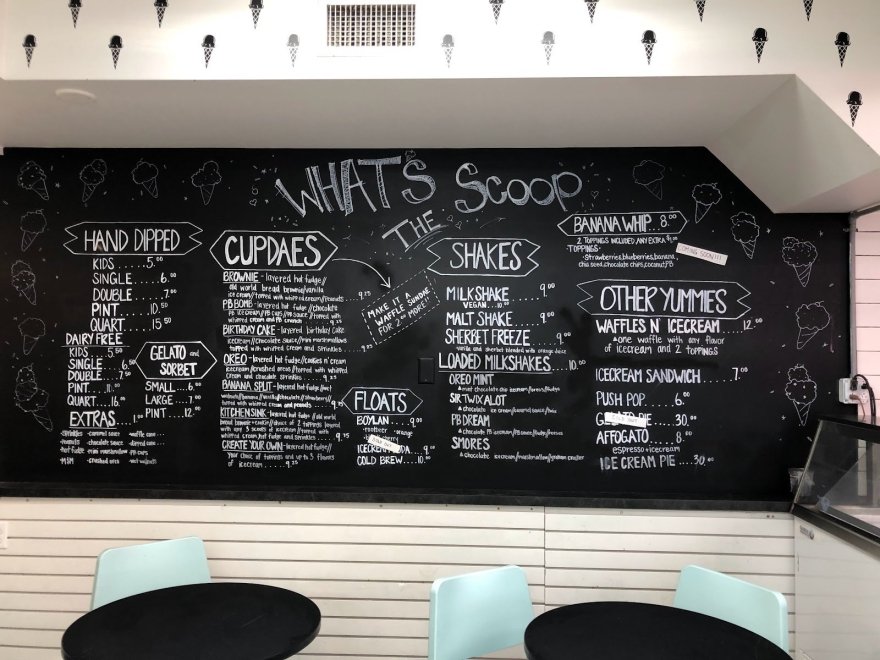 WHAT'S Scoop
THE
HAND DIPPED
KIDS.....5.00
SINGLE....6.00
DOUBLE....7.00
PINT....10.50
QUART....15.50
DAIRY FREE
KIDS....5.50
SINGLE....6.50
DOUBLE...7.50
PINT....11.00
QUART....16.00
EXTRAS....1.00
•sprinkles •caramel sauce •waffle cone
•peanuts •chocolate sauce
•hot fudge •mini marshmallow •PB cups
•M&M •crushed oreo •wet walnuts
GELATO and
SORBET
SMALL....6.00
LARGE....7.00
PINT....12.00
CUPDAES
BROWNIE - layered hot fudge//
old world bread brownie//vanilla
ice cream//topped with whipped cream//peanuts 9.25
PB BOMB - layered hot fudge//chocolate
PB ice cream//PB cups//PB sauce//topped with
whipped cream and PB crunch 9.25
BIRTHDAY CAKE - layered birthday cake
icecream//chocolate sauce//mini marshmallows
topped with whipped cream and sprinkles 9.25
OREO - layered hot fudge//cookies n' cream
icecream//crushed oreos//topped with whipped
cream and chocolate sprinkles 9.25
BANANA SPLIT - layered hot fudge//wet
walnuts//vanilla//chocolate//strawberry//
topped with whipped cream and peanuts 9.25
KITCHEN SINK - layered hot fudge//old world
brownie+cookie//choice of 2 toppings layered
with any 3 scoops of icecream//topped with
whipped cream, hot fudge and sprinkles
CREATE YOUR OWN - layered hot fudge//
your choice of toppings and up to 3 flavors
of icecream......9.25
MAKE IT A
WAFFLE SUNDAE
FOR 2.00 MORE!
FLOATS
BOYLAN....9.00
•orange
ICECREAM SODA...9.00
COLD BREW...10.00
SHAKES
MILKSHAKE....9.00
VEGAN....10.00
MALT SHAKE....9.00
SHERBET FREEZE....9.00
•vanilla and sherbet blended with orange juice
LOADED MILKSHAKES....10.00
OREO MINT
▲mint chocolate chip icecream/oreos/fudge
SIR TWIX ALOT
▲chocolate ice cream/caramel sauce/twix
PB DREAM
▲chocolate PB icecream/PB sauce/fudge/reeses
SMORES
▲chocolate icecream/marshmallow/graham cracker
BANANA WHIP..8.00
2 TOPPINGS INCLUDED, ANY EXTRA $1.00
•TOPPINGS•
•Strawberries, blueberries, banana,
chia seed, chocolate chips, coconut, PB
COMING SOON!!!
OTHER YUMMIES
WAFFLES N' ICECREAM...12.00
▲one waffle with any flavor
of icecream and 2 toppings
ICECREAM SANDWICH....7.00
PUSH POP....6.00
PIE....30.00
AFFOGATO....8.00
espresso+icecream
ICE CREAM PIE....30.00